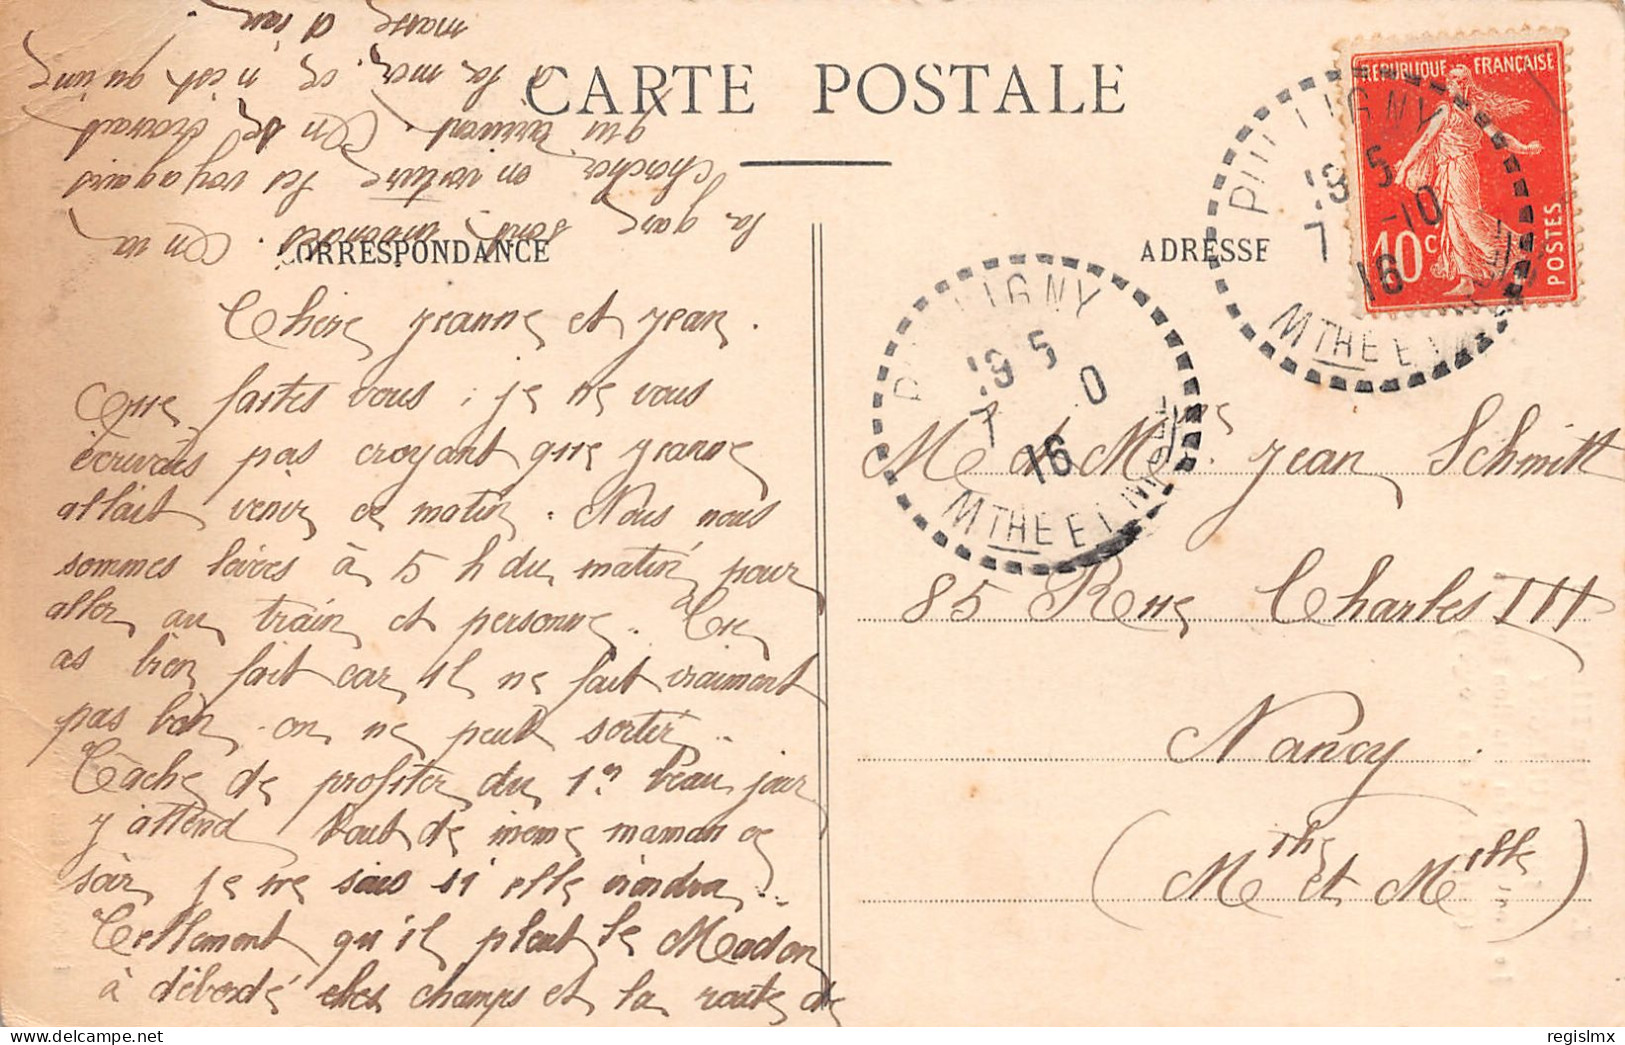 CARTE POSTALE
CORRESPONDANCE
ADRESSE
REPUBLIQUE FRANÇAISE
10c
POSTES
PULLIGNY
19 5
7 -10
16
MTHE ET MELLE
PULLIGNY
19 5
7 0
16
MTHE ET MELLE
Chère Jeanne et Jean.
Que faites vous ; je ne vous
écrivais pas croyant que Jeanne
allait venir ce matin. Nous nous
sommes levées à 5 h du matin pour
aller au train et personne. Tu
as bien fait car il ne fait vraiment
pas bon on ne peut sortir.
Tâche de profiter du 1er beau jour
j'attend tout de même maman ce
soir je ne sais si elle viendra.
Tellement qu'il pleut le Madon
à débordé les champs et la route de
la gare sont inondés. On va
chercher en voiture les voyageurs
qui arrivent. On se croirait
à la mer, ce n'est qu'une
masse d'eau
M et Mme Jean Schmitt
85 Rue Charles III
Nancy
(Mthe et Melle)
regislmx